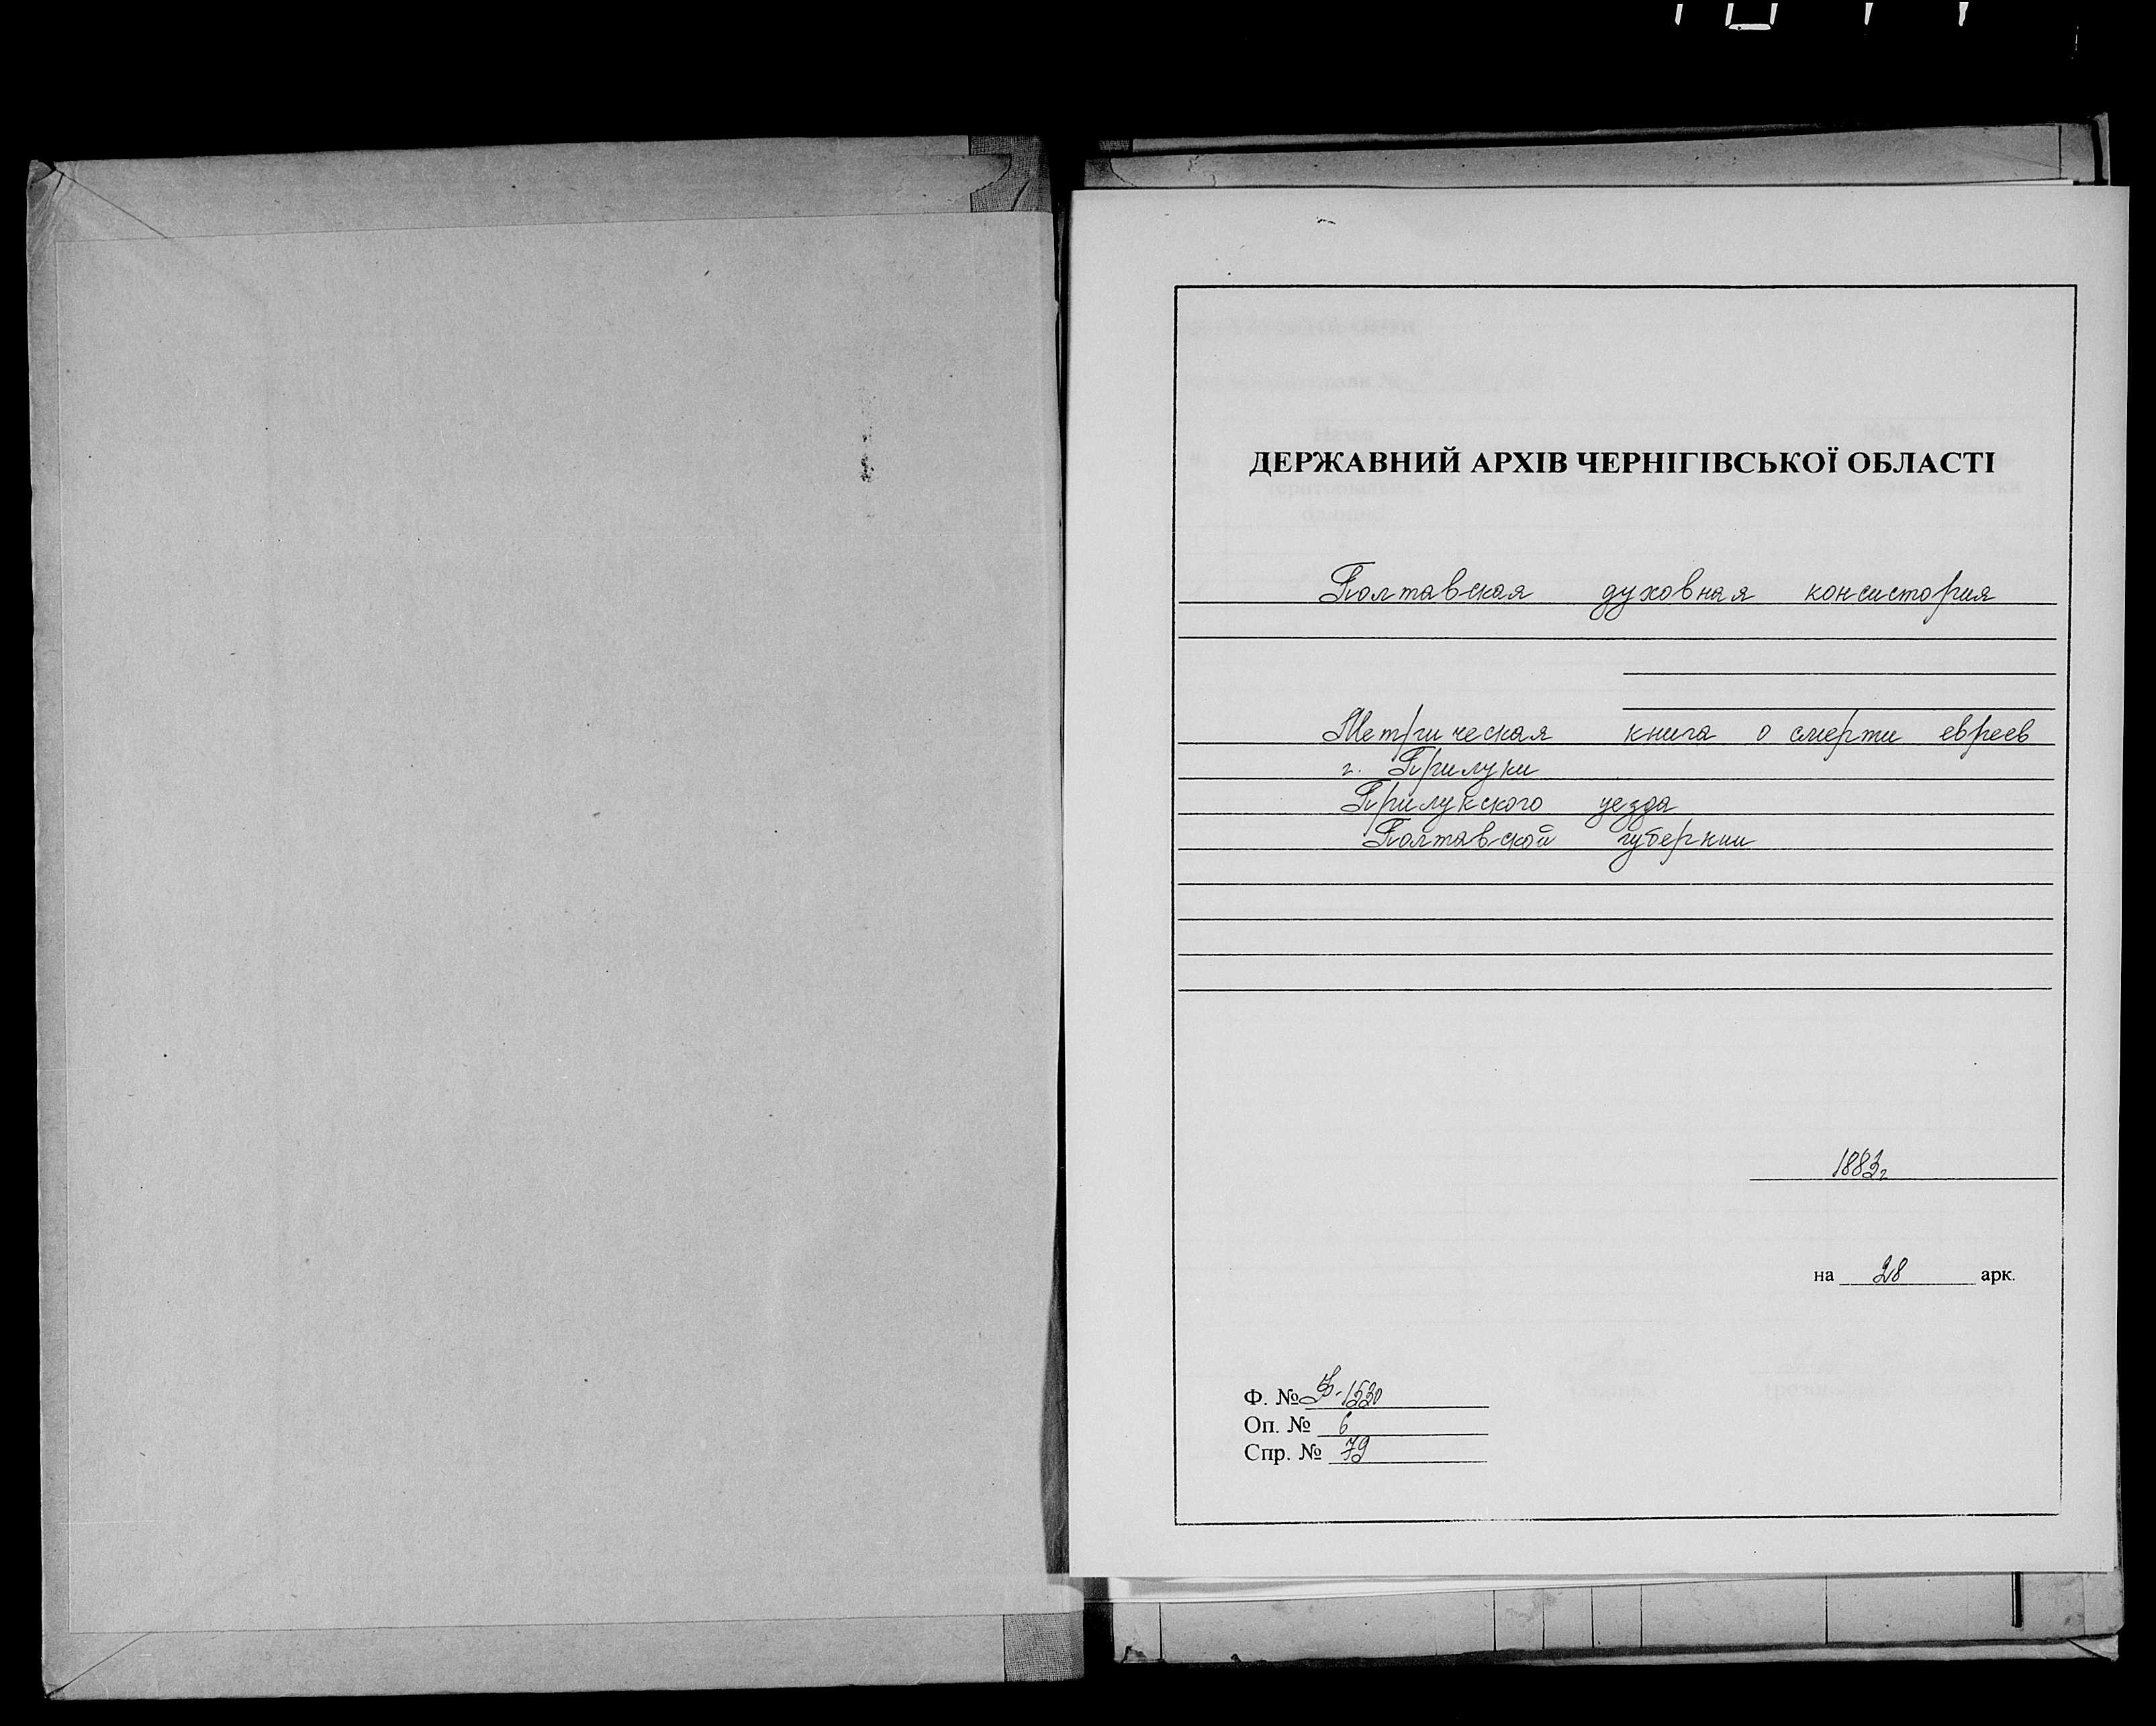 ДЕРЖАВНИЙ АРХІВ ЧЕРНІГІВСЬКОЇ ОБЛАСТІ
Полтавская духовная консистория
Метрическая книга о смерти евреев
г. Прилуки
Прилукского уезда
Полтавской губернии
1883г
на 28 арк.
Ф. № Ф-1530
Оп. № 6
Спр. № 79